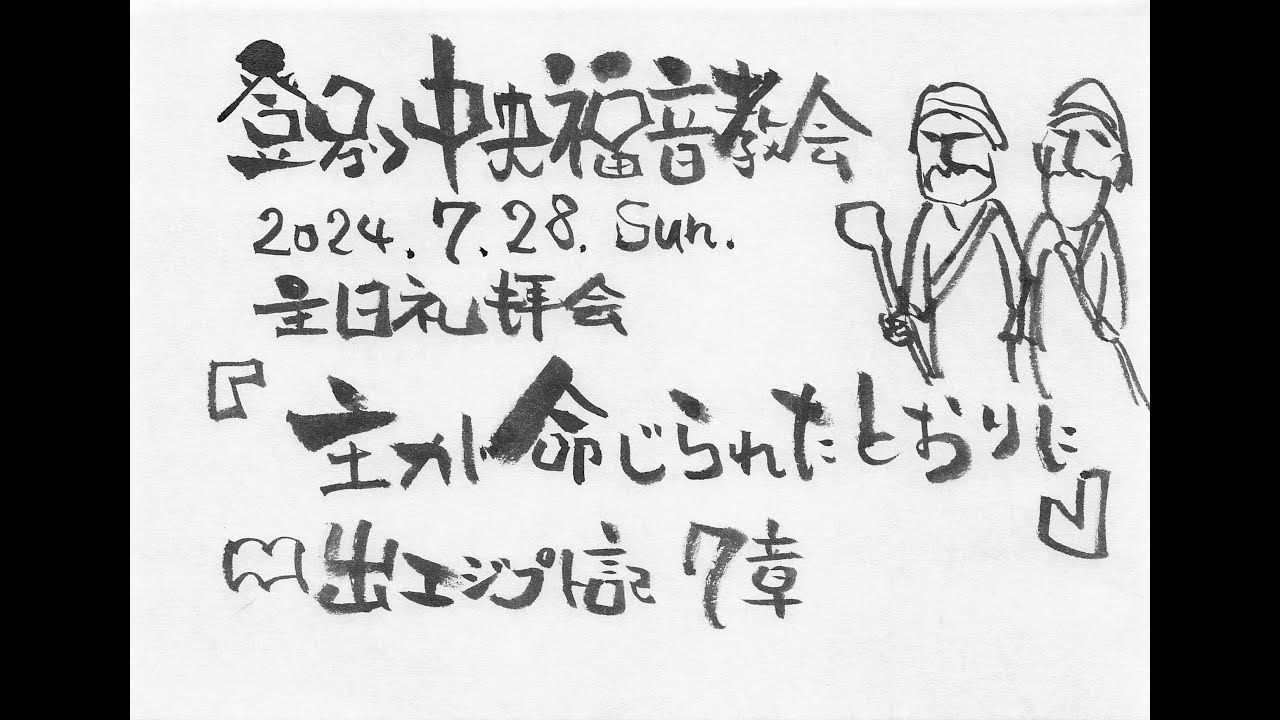 登別中央福音教会
2024.7.28.Sun.
聖日礼拝会
『主が命じられたとおりに』
出エジプト記 7章